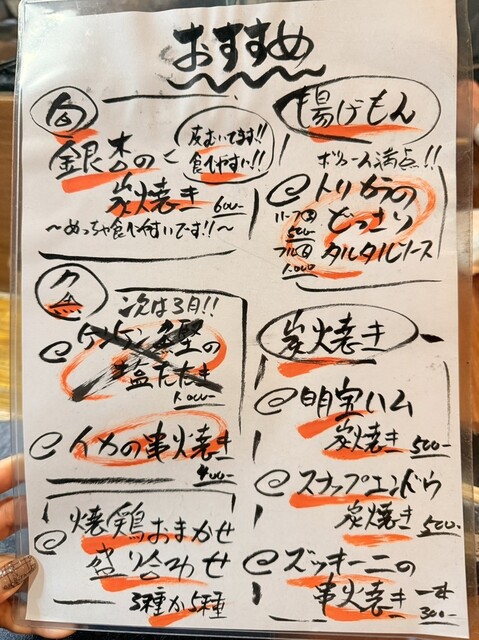 おすすめ
旬
銀杏の
炭焼き
皮むいてます!!
食べやすい!!
600-
〜めっちゃ食べ付いです!!〜
魚
次は3月!!
塩たたき
1.000-
イカの串焼き
400-
焼鶏おまかせ
盛り合わせ
3種か5種
揚げもん
ボリューム満点!!
トリからの
どっさり
タルタルソース
ハーフ
500-
フル
1.000
炭火焼き
明宝ハム
炭焼き 500-
スナップエンドウ
炭焼き 500-
ズッキーニの
串焼き 一本
300-